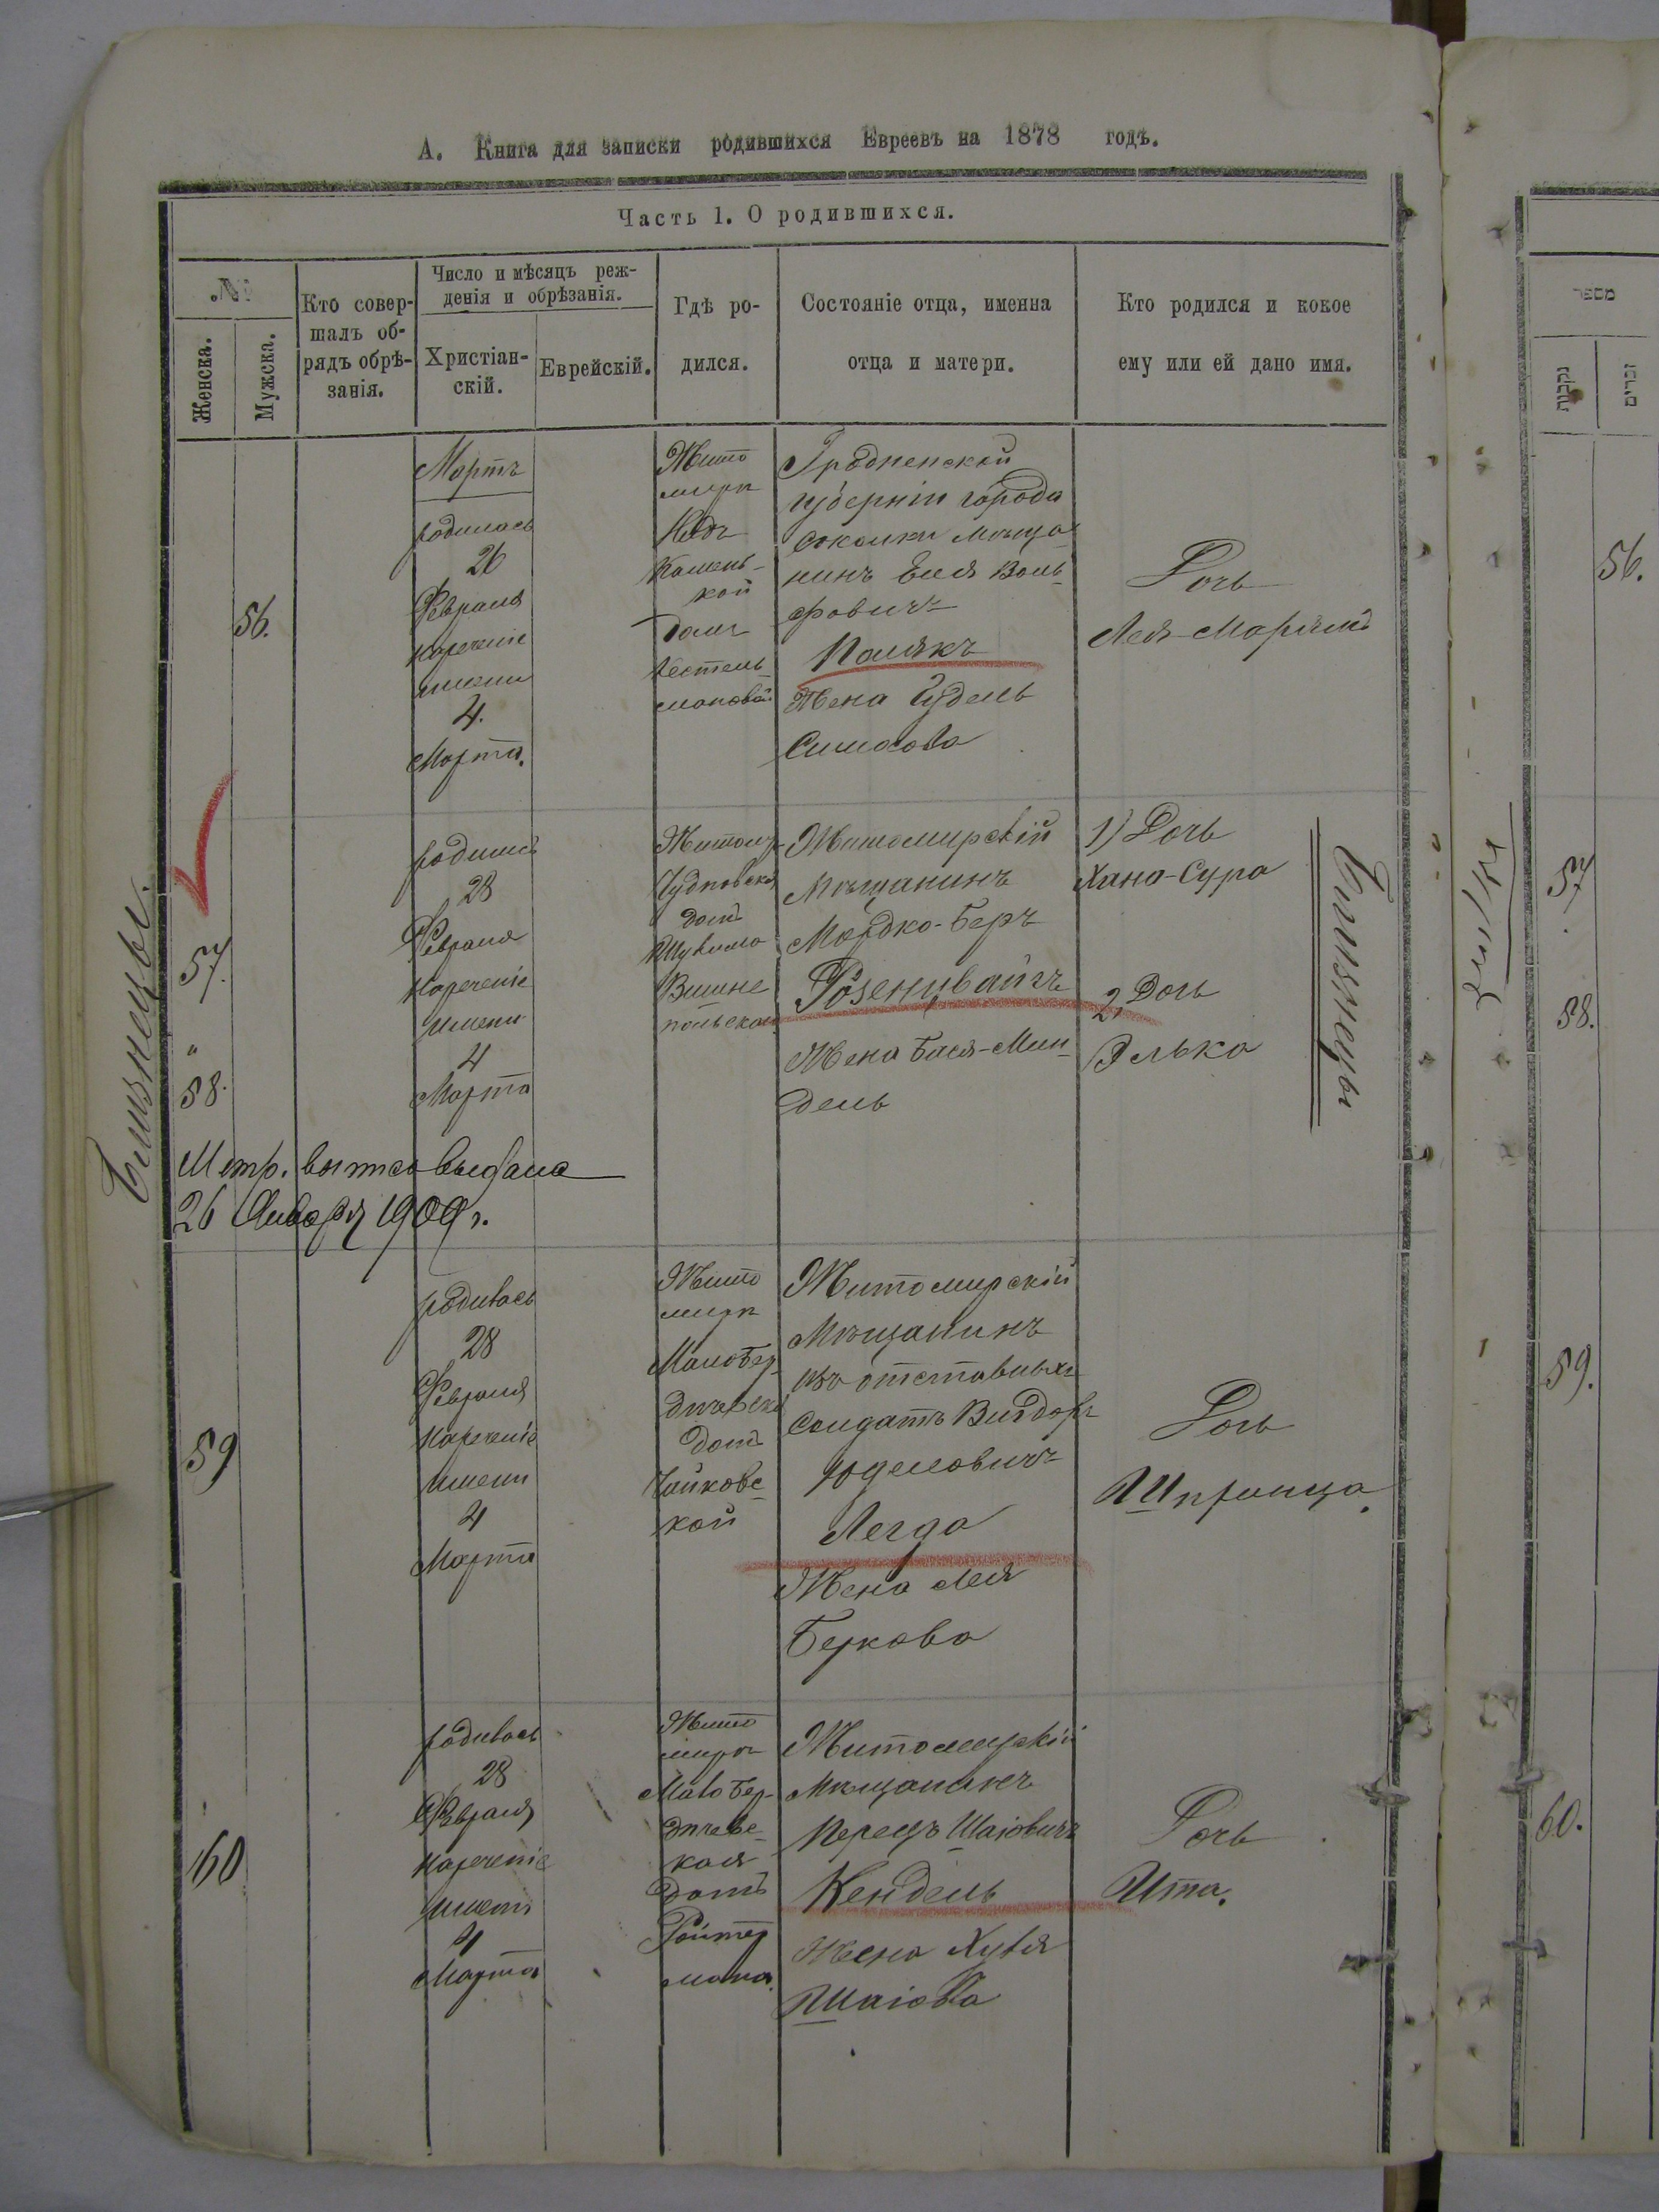 А. Книга для записки родившихся Евреевъ на 1878 годъ.
Часть 1. О родившихся.
№
Женска.
Мужска.
Кто совер-
шалъ об-
рядъ обрѣ-
занія.
Число и мѣсяцъ реж-
денія и обрѣзанія.
Христіан-
скій.
Еврейскій.
Гдѣ ро-
дился.
Состояніе отца, именна
отца и матери.
Кто родился и кокое
ему или ей дано имя.
56.
Мартъ
родилась
26
Февраля
нареченіе
имени
4.
Марта.
Жито
миръ
Надъ
Камень-
кой
домъ
мановой
Гродненской
губерніи города
Соколки мѣща-
нинъ Еля Воль-
фовичъ
Полякъ
Жена Гудель
Симхова
Дочь
Лея-Маріямъ
Близнецы.
57.
"
58.
родились
28
Февраля
нареченіе
имени
4
Марта
Житомир
Чудновска
домъ
Вишне
польской
Житомирскій
Мѣщанинъ
Мордко-Беръ
Розенцвайгъ
Жена Бася-Мин-
дель
1) Дочь
Хана-Сура
2, Дочь
Элька
Близнецы
Метр. выпись выдана
26 Января 1909 г.
59
родилась
28
Февраля
нареченіе
имени
4
Марта
Жито
миръ
Малобер-
дичевска
домъ
Чайковс-
кой
Житомирскій
Мѣщанинъ
изъ отставныхъ
Солдатъ Вигдоръ
Юделовичъ
Легда
Жена Лея
Беркова
Дочь
Шпринца.
60
родилась
28
Февраля
нареченіе
имени
4
Марта
Жито
миръ
Мало Бер-
дичевс-
кая
домъ
Ройтер
мана.
Житомирскій
Мѣщанинъ
Перецъ Шаіовичъ
Кендель
Жена Хувя
Шаіова
Дочь
Ита.
מספר
נקבות
זכרים
56.
57
58.
59.
60.